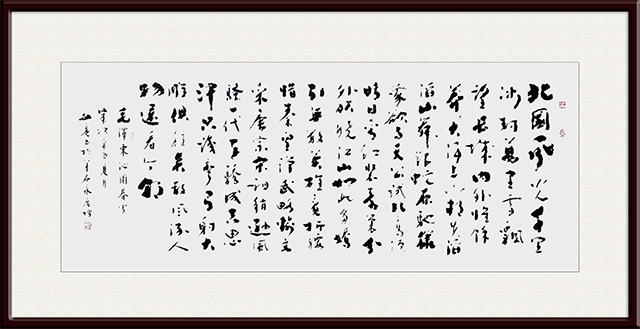 北國風光千里
冰封萬里雪飄
望長城内外惟餘
莽莽大河上下頓失滔
滔山舞銀蛇原馳蠟
象欲与天公試比高須
晴日看紅裝素裹分
外妖嬈江山如此多嬌
引無數英雄竞折腰
惜秦皇漢武略輸文
采唐宗宋祖稍遜風
騷一代天驕成吉思
汗只識彎弓射大
雕俱往矣數風流人
物還看今朝
毛澤東沁園春雪